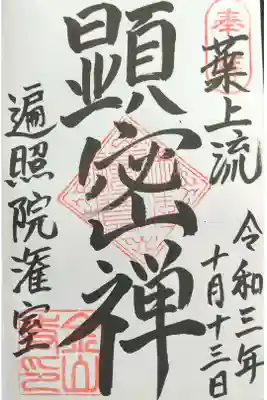 奉拝
葉上流
令和三年
十月十三日
顕密禅
遍照院潅室
金山寺印